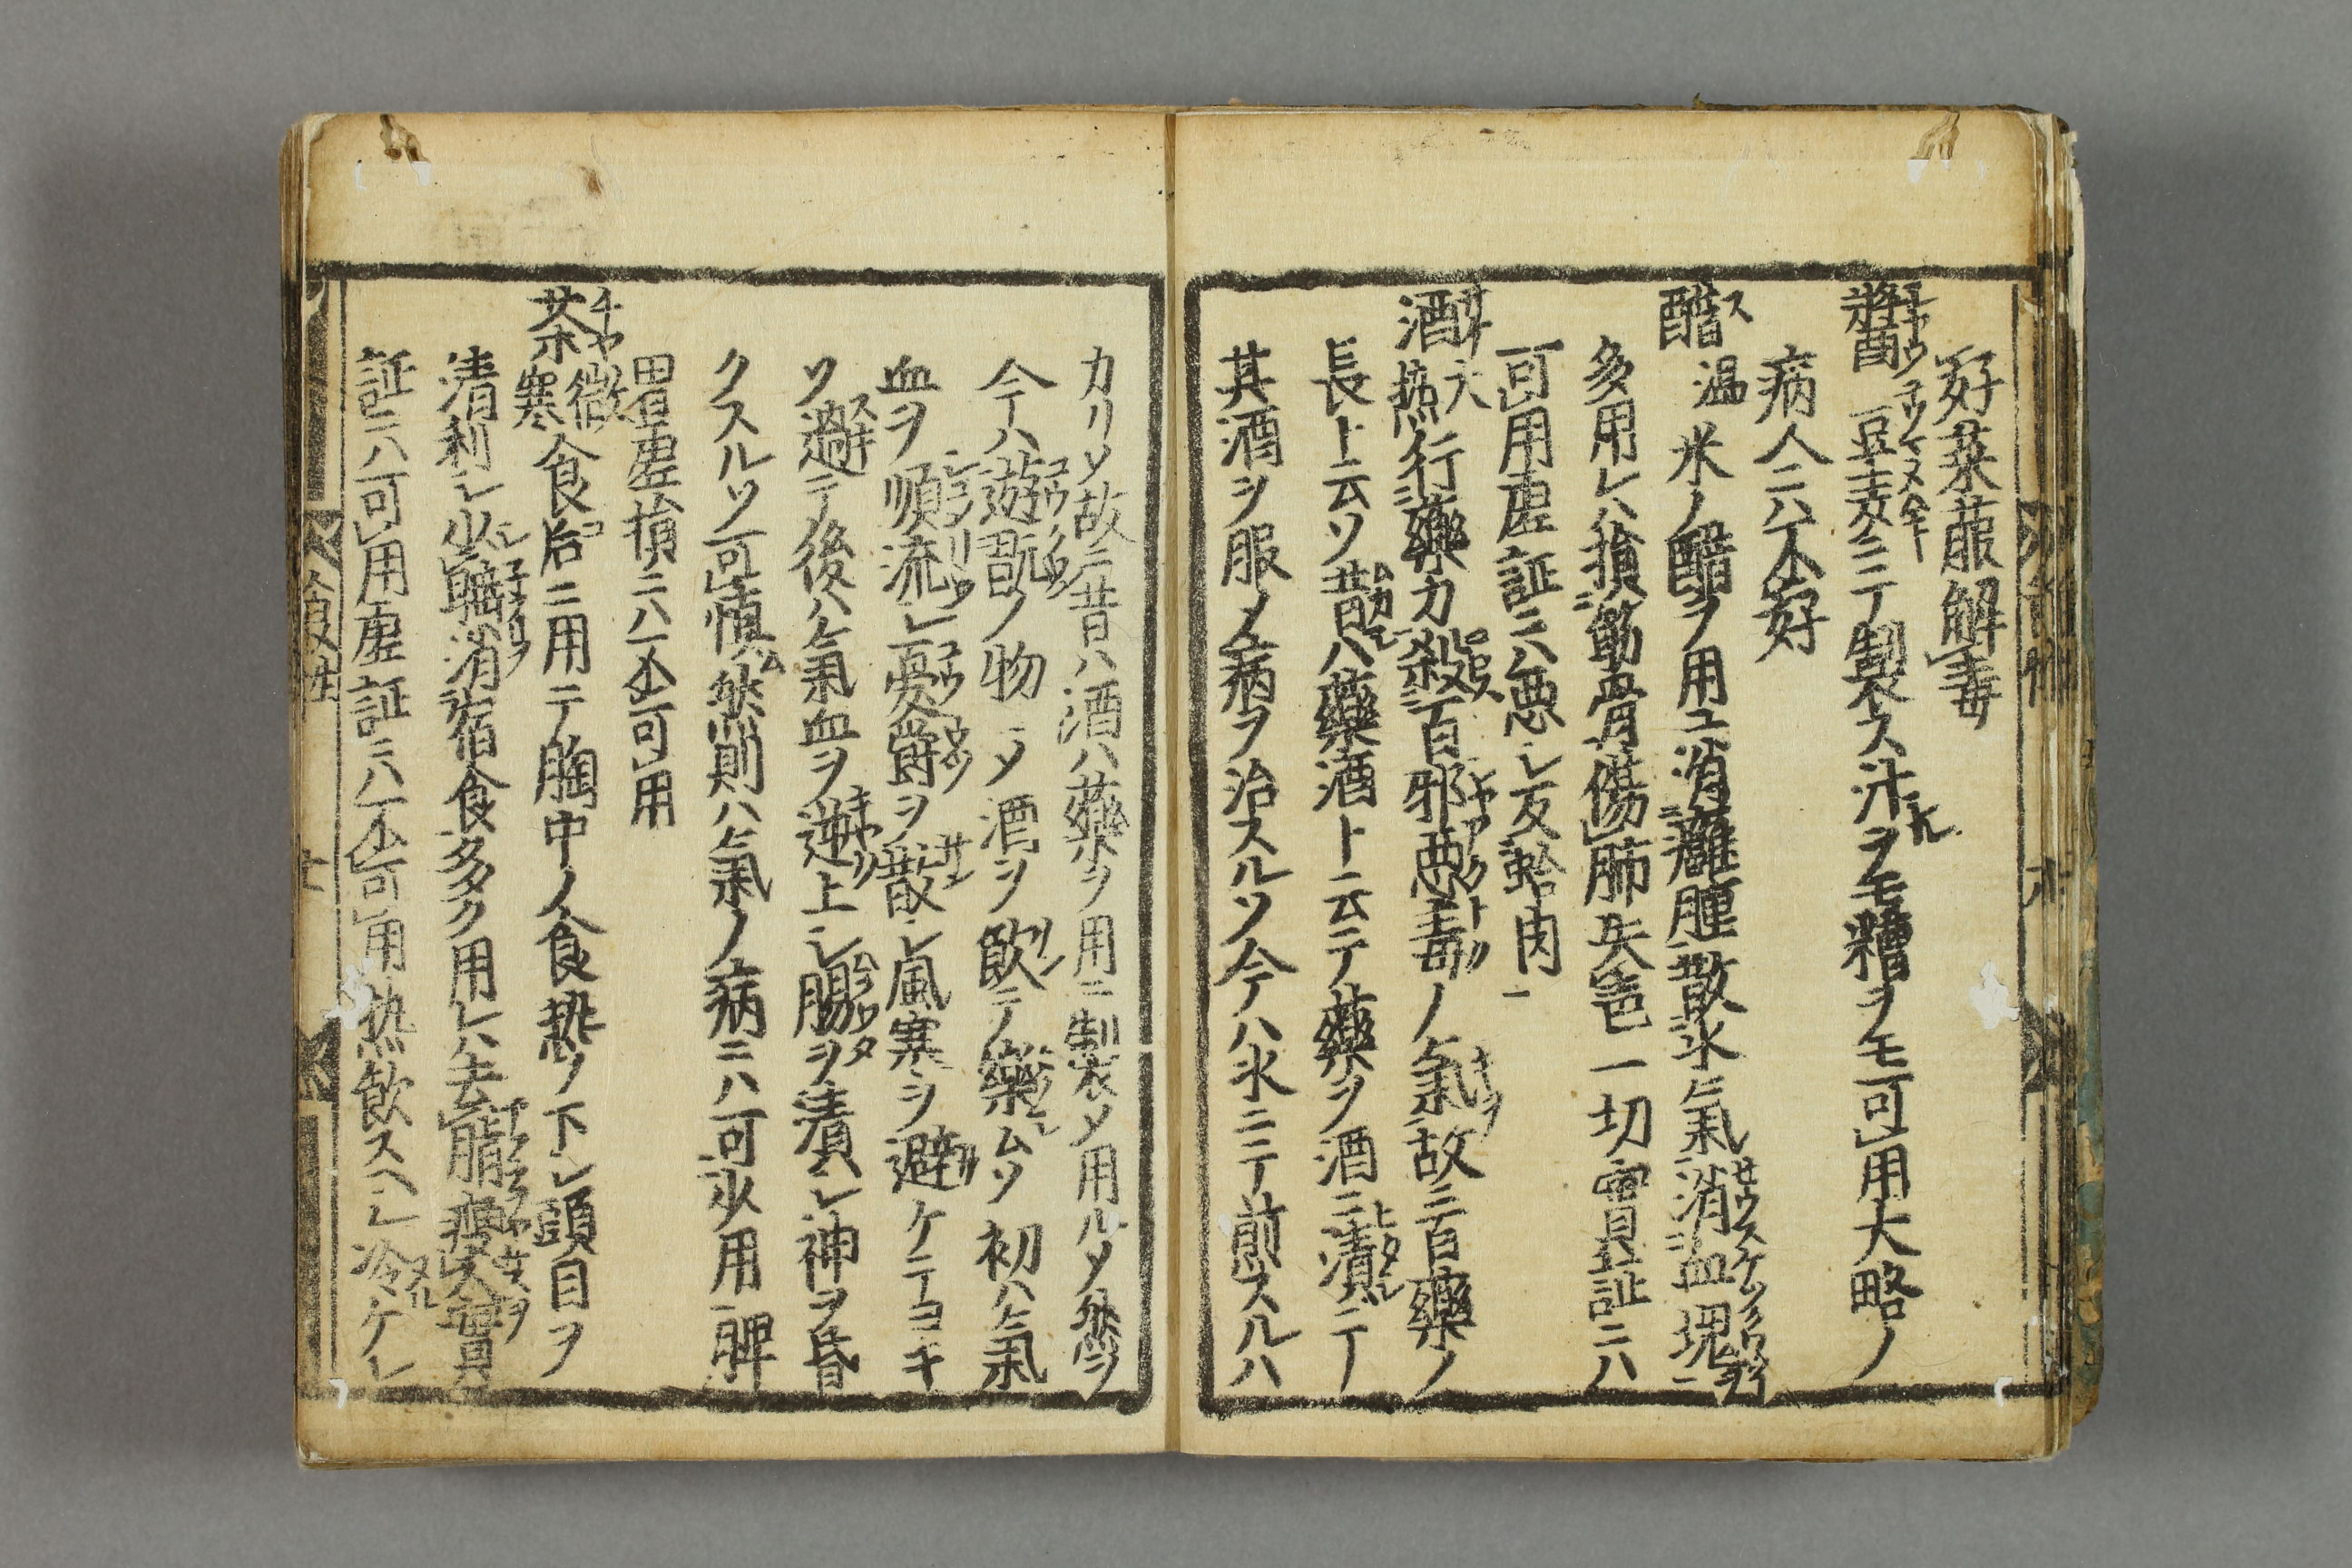 好菜菔解毒
醬 豆麦ニテ製ス汁ヲモ糟ヲモ可用大略ノ
病人ニハ不好
醋 温 米ノ醋ヲ用ユ消癰腫散水氣消血塊
多用レハ損筋骨傷肺失色一切實証ニハ
可用虚証ニハ悪シ反蛤肉
酒 大热 行藥力殺百邪悪毒ノ氣故ニ百藥ノ
長ト云ソ昔ハ藥酒ト云テ藥ヲ酒ニ漬テ
其酒ヲ服メ病ヲ治スルソ今ハ水ニテ煎スルハ
カリメ故ニ昔ハ酒ハ藥ヲ用ニ製メ用ルメ然ヲ
今ハ遊翫ノ物ニメ酒ヲ飲テ樂ムソ初ハ氣
血ヲ順流シ憂欝ヲ散シ風寒ヲ避ケテヨキ
ソ過テ後ハ氣血ヲ逆上シ腸ヲ漬シ神ヲ昏
クスルソ可慎然則ハ氣ノ病ニハ可少用脾
胃虚損ニハ不可用
茶 微寒 食后ニ用テ胸中ノ食热ヲ下シ頭目ヲ
清利シ少職消宿食多ク用レハ去脂瘦人實
証ニハ可用虚証ニハ不可用热飲スヘシ冷ケレ
食性